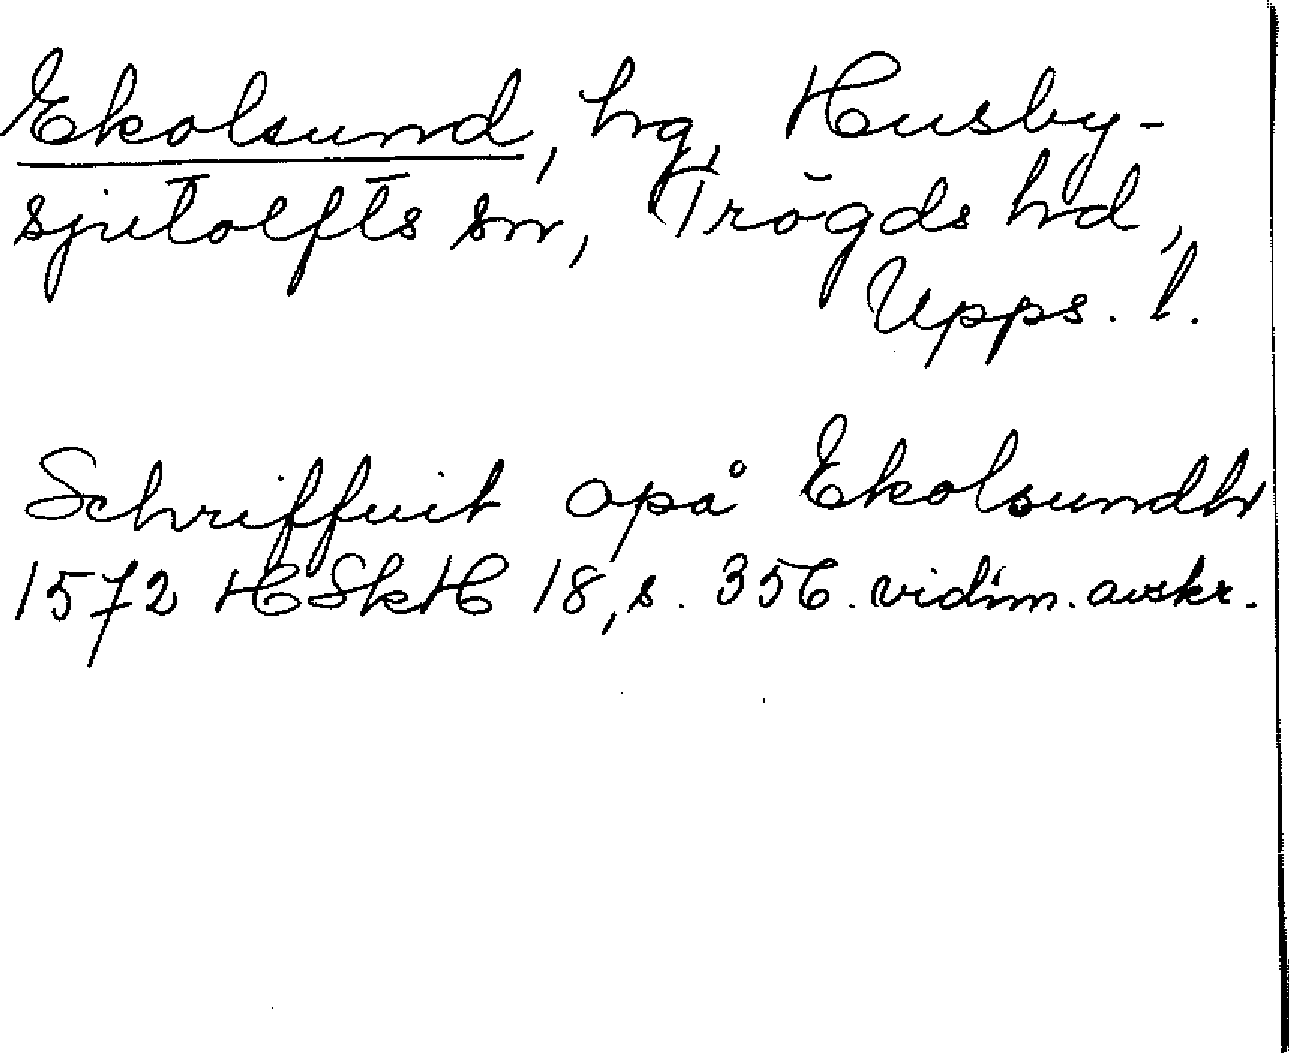 Ekolsund, hg, Husby-
sjutolfts sn, Trögds hd,
Upps. l.
Schriffuit opå Ekolsundh
1572 HSkH 18, s. 356. vidim. avskr.